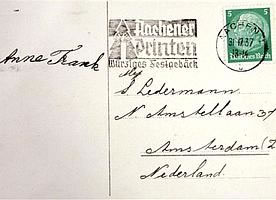 Aachener
Printen
Würziges Festgebäck
AACHEN
37
5
Deutsches Reich
Anne Frank
S. Ledermann
N. Amstellaan 37
Amsterdam (Z
Nederland